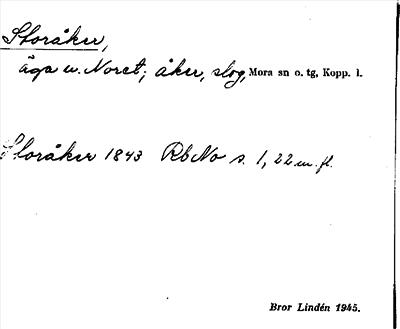 Storåker,
äga u. Noret; åker, slog, Mora sn o. tg, Kopp. l.
Storåker 1843 RbNo s. 1, 22 m. fl.
Bror Lindén 1945.